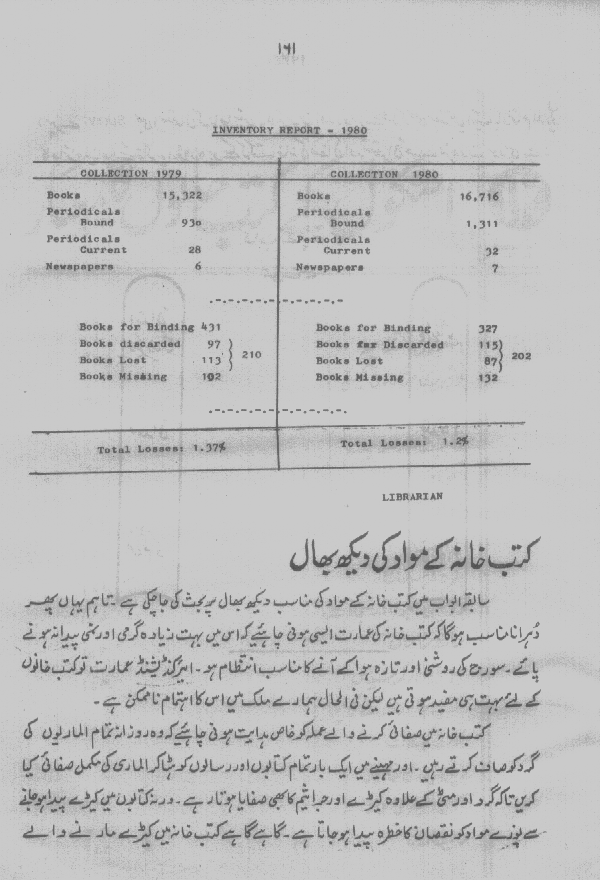 ۱۶۱
INVENTORY REPORT - 1980
COLLECTION 1979 COLLECTION 1980
Books 15,322 Books 16,716
Periodicals Periodicals
Bound 930 Bound 1,311
Periodicals Periodicals
Current 28 Current 32
Newspapers 6 Newspapers 7
Books for Binding 431 Books for Binding 327
Books discarded 97 Books for Discarded 115
210 202
Books Lost 113 Books Lost 87
Books Missing 102 Books Missing 132
Total Losses: 1.37% Total Losses: 1.2%
LIBRARIAN
کتب خانہ کے مواد کی دیکھ بھال
سابقہ ابواب میں کتب خانہ کے مواد کی مناسب دیکھ بھال پر بحث کی جا چکی ہے ۔ تاہم یہاں پھر
دُہرانا مناسب ہوگا کہ کتب خانہ کی عمارت ایسی ہونی چاہئیے کہ اس میں بہت زیادہ گرمی اور نمی پیدا نہ ہونے
پائے ۔ سورج کی روشنی اور تازہ ہوا کے آنے کا مناسب انتظام ہو ۔ ایئرکنڈیشنڈ عمارت تو کتب خانوں
کے لئے بہت ہی مفید ہوتی ہیں لیکن فی الحال ہمارے ملک میں اس کا اہتمام ناممکن ہے ۔
کتب خانہ میں صفائی کرنے والے عملہ کو خاص ہدایت ہونی چاہئیے کہ وہ روزانہ تمام الماریوں کی
گرد کو صاف کرتے رہیں ۔ اور مہینے میں ایک بار تمام کتابوں اور رسالوں کو ہٹا کر الماری کی مکمل صفائی کیا
کریں تاکہ گرد اور مٹی کے علاوہ کیڑے اور جراثیم کا بھی صفایا ہوتا رہے ۔ ورنہ کتابوں میں کیڑے پیدا ہو جانے
سے پورے مواد کو نقصان کا خطرہ پیدا ہو جاتا ہے ۔ گاہے گاہے کتب خانہ میں کیڑے مارنے والے